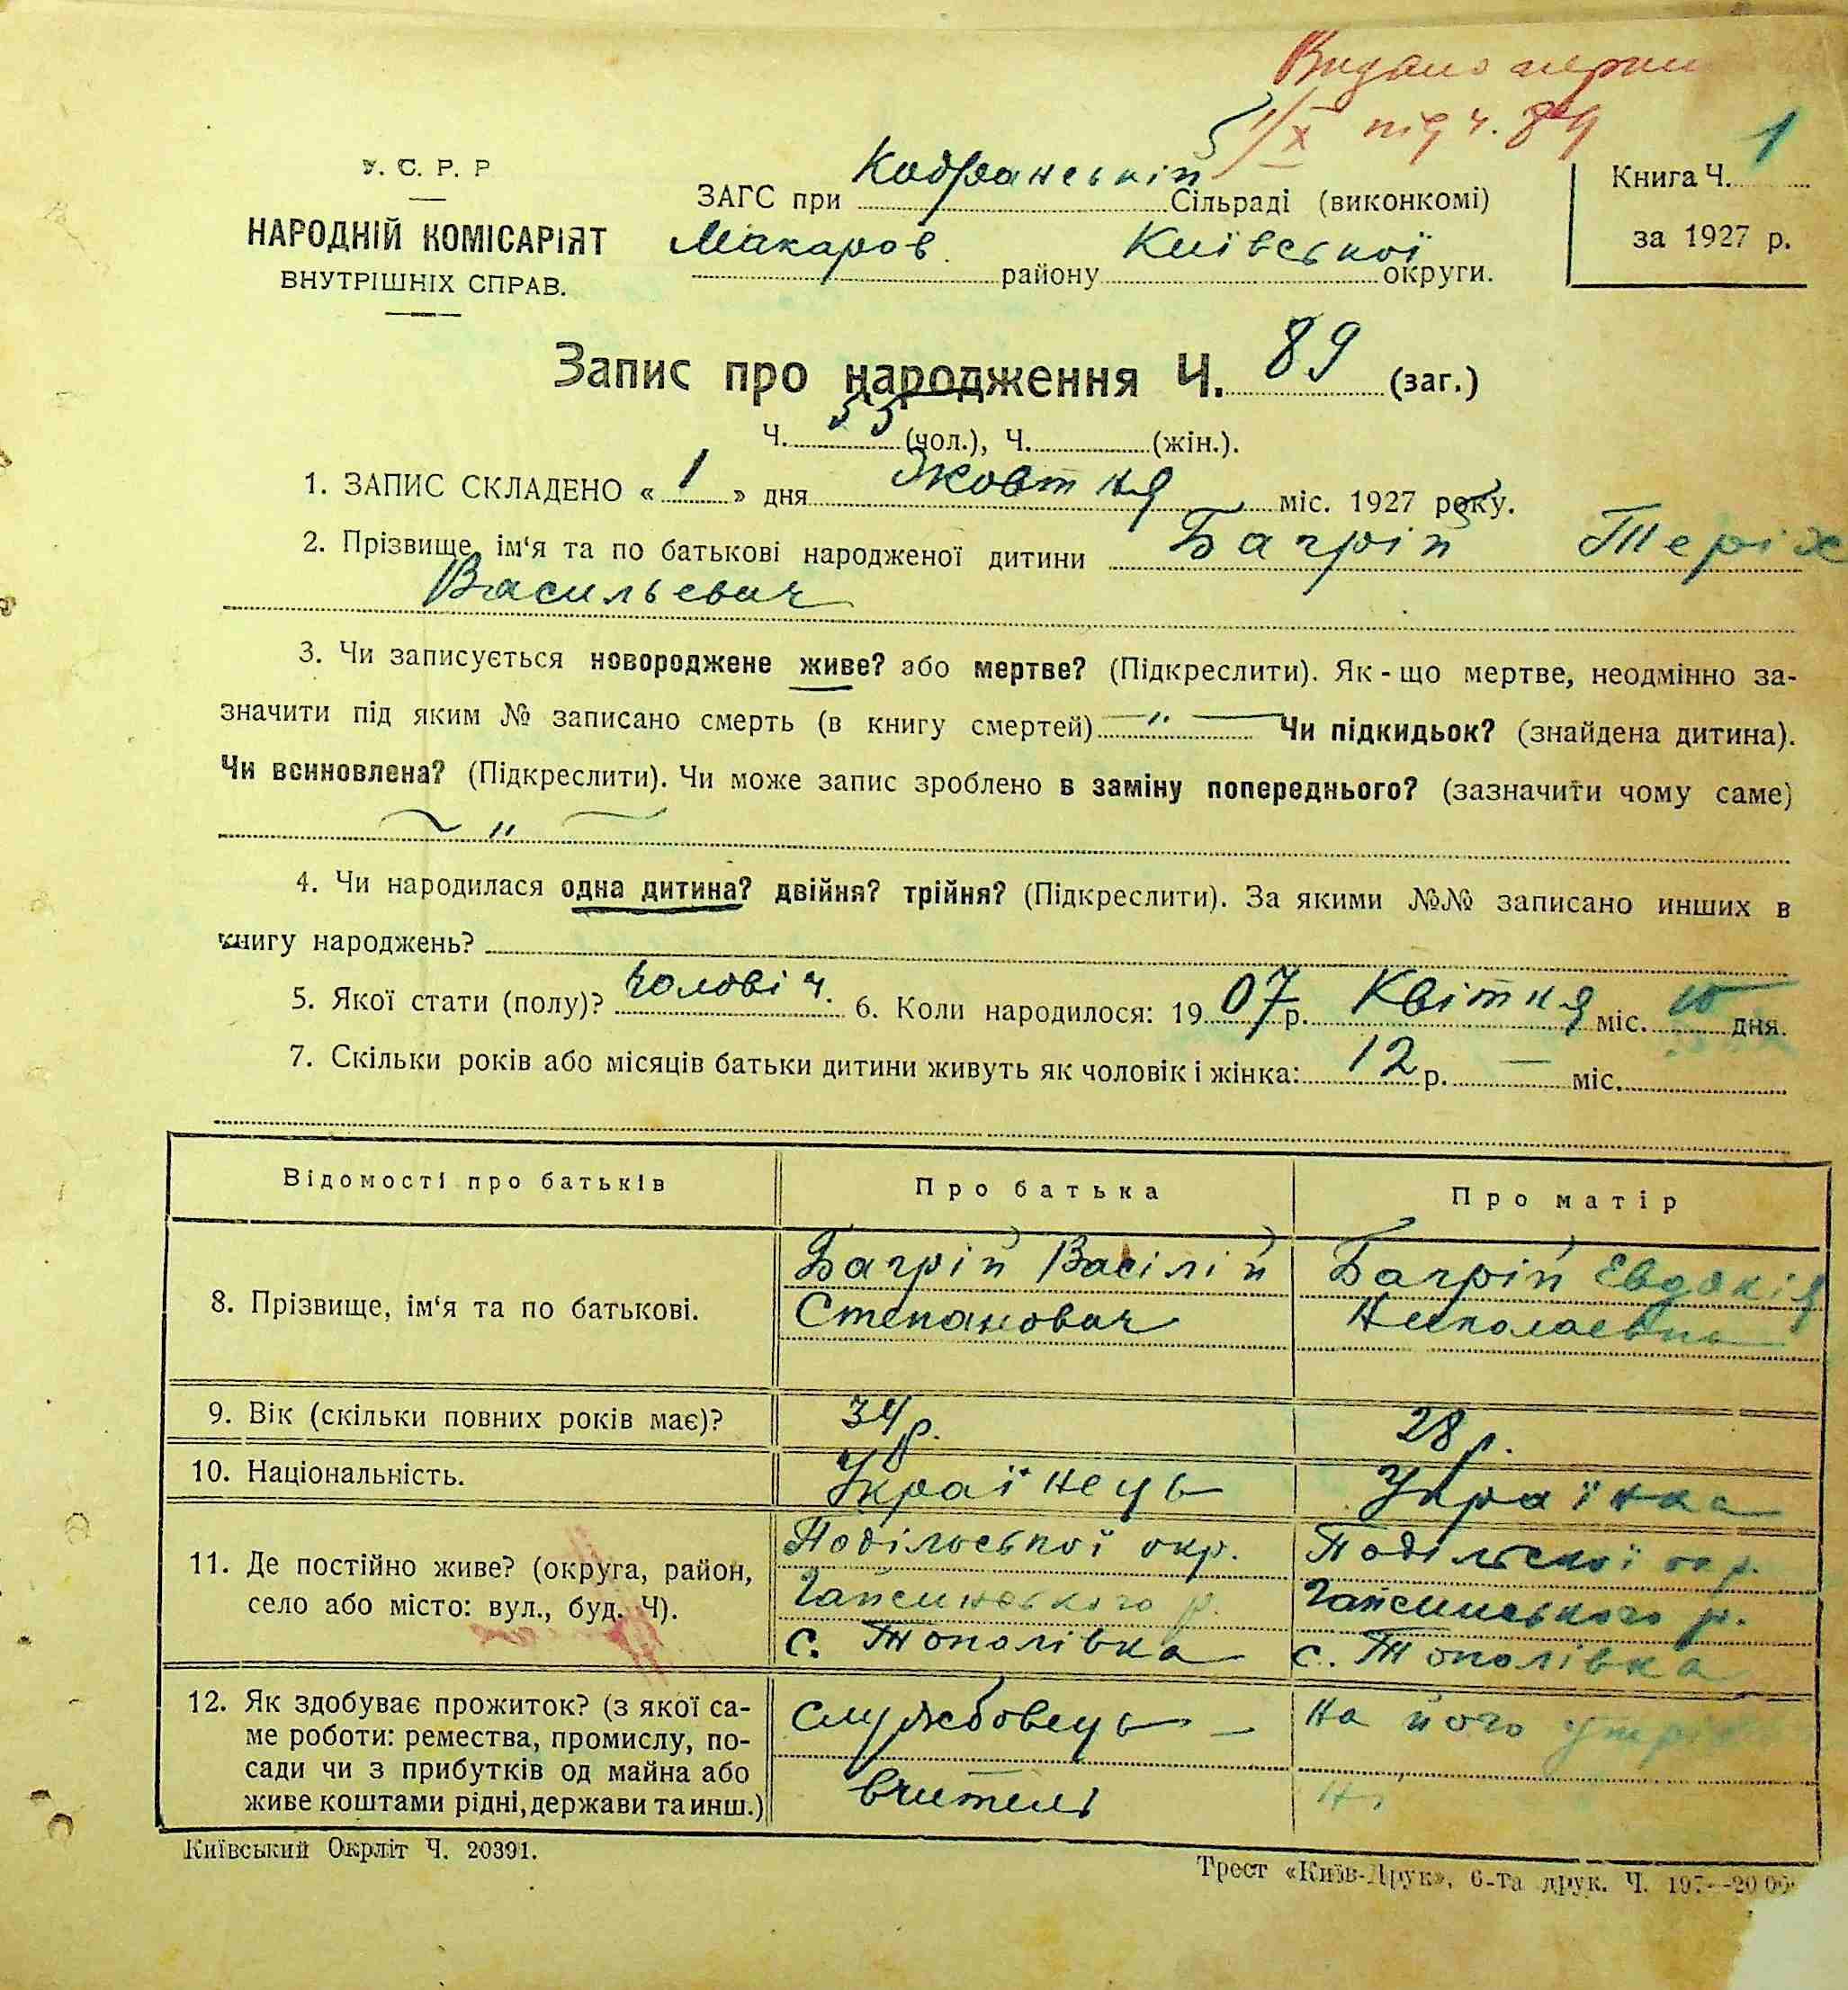 Видано
1/X під ч. 89
У. С. Р. Р
НАРОДНІЙ КОМІСАРІЯТ
ВНУТРІШНІХ СПРАВ.
ЗАГС при Кодранській Сільраді (виконкомі)
Макаров. району Київської округи.
Книга Ч. 1
за 1927 р.
Запис про народження Ч. 89 (заг.)
Ч. 55 (чол.), Ч. (жін.).
1. ЗАПИС СКЛАДЕНО « 1 » дня Жовтня міс. 1927 року.
2. Прізвище, ім‘я та по батькові народженої дитини Багрій
Васильевич
3. Чи записується новороджене живе? або мертве? (Підкреслити). Як - що мертве, неодмінно за-
значити під яким № записано смерть (в книгу смертей) — „ — Чи підкидьок? (знайдена дитина).
Чи всиновлена? (Підкреслити). Чи може запис зроблено в заміну попереднього? (зазначити чому саме)
~ „ ~
4. Чи народилася одна дитина? двійня? трійня? (Підкреслити). За якими №№ записано инших в
книгу народжень?
5. Якої стати (полу)? чоловіч. 6. Коли народилося: 19 07 р. Квітня міс. 10 дня.
7. Скільки років або місяців батьки дитини живуть як чоловік і жінка: 12 р. — міс.
Відомості про батьків
Про батька
Про матір
8. Прізвище, ім‘я та по батькові.
Багрій Васілій
Степанович
Багрій Евдокія
Николаевна
9. Вік (скільки повних років має)?
34 р.
28 р.
10. Національність.
Українець
Українка
11. Де постійно живе? (округа, район,
село або місто: вул., буд. Ч).
Подільської окр.
Гайсинського р.
с. Тополівка
Подільскої окр.
Гайсинського р.
с. Тополівка
12. Як здобуває прожиток? (з якої са-
ме роботи: ремества, промислу, по-
сади чи з прибутків од майна або
живе коштами рідні, держави та инш.)
службовець —
вчитель
на його
Київський Окрліт Ч. 20391.
Трест «Київ-Друк», 6-та друк. Ч.